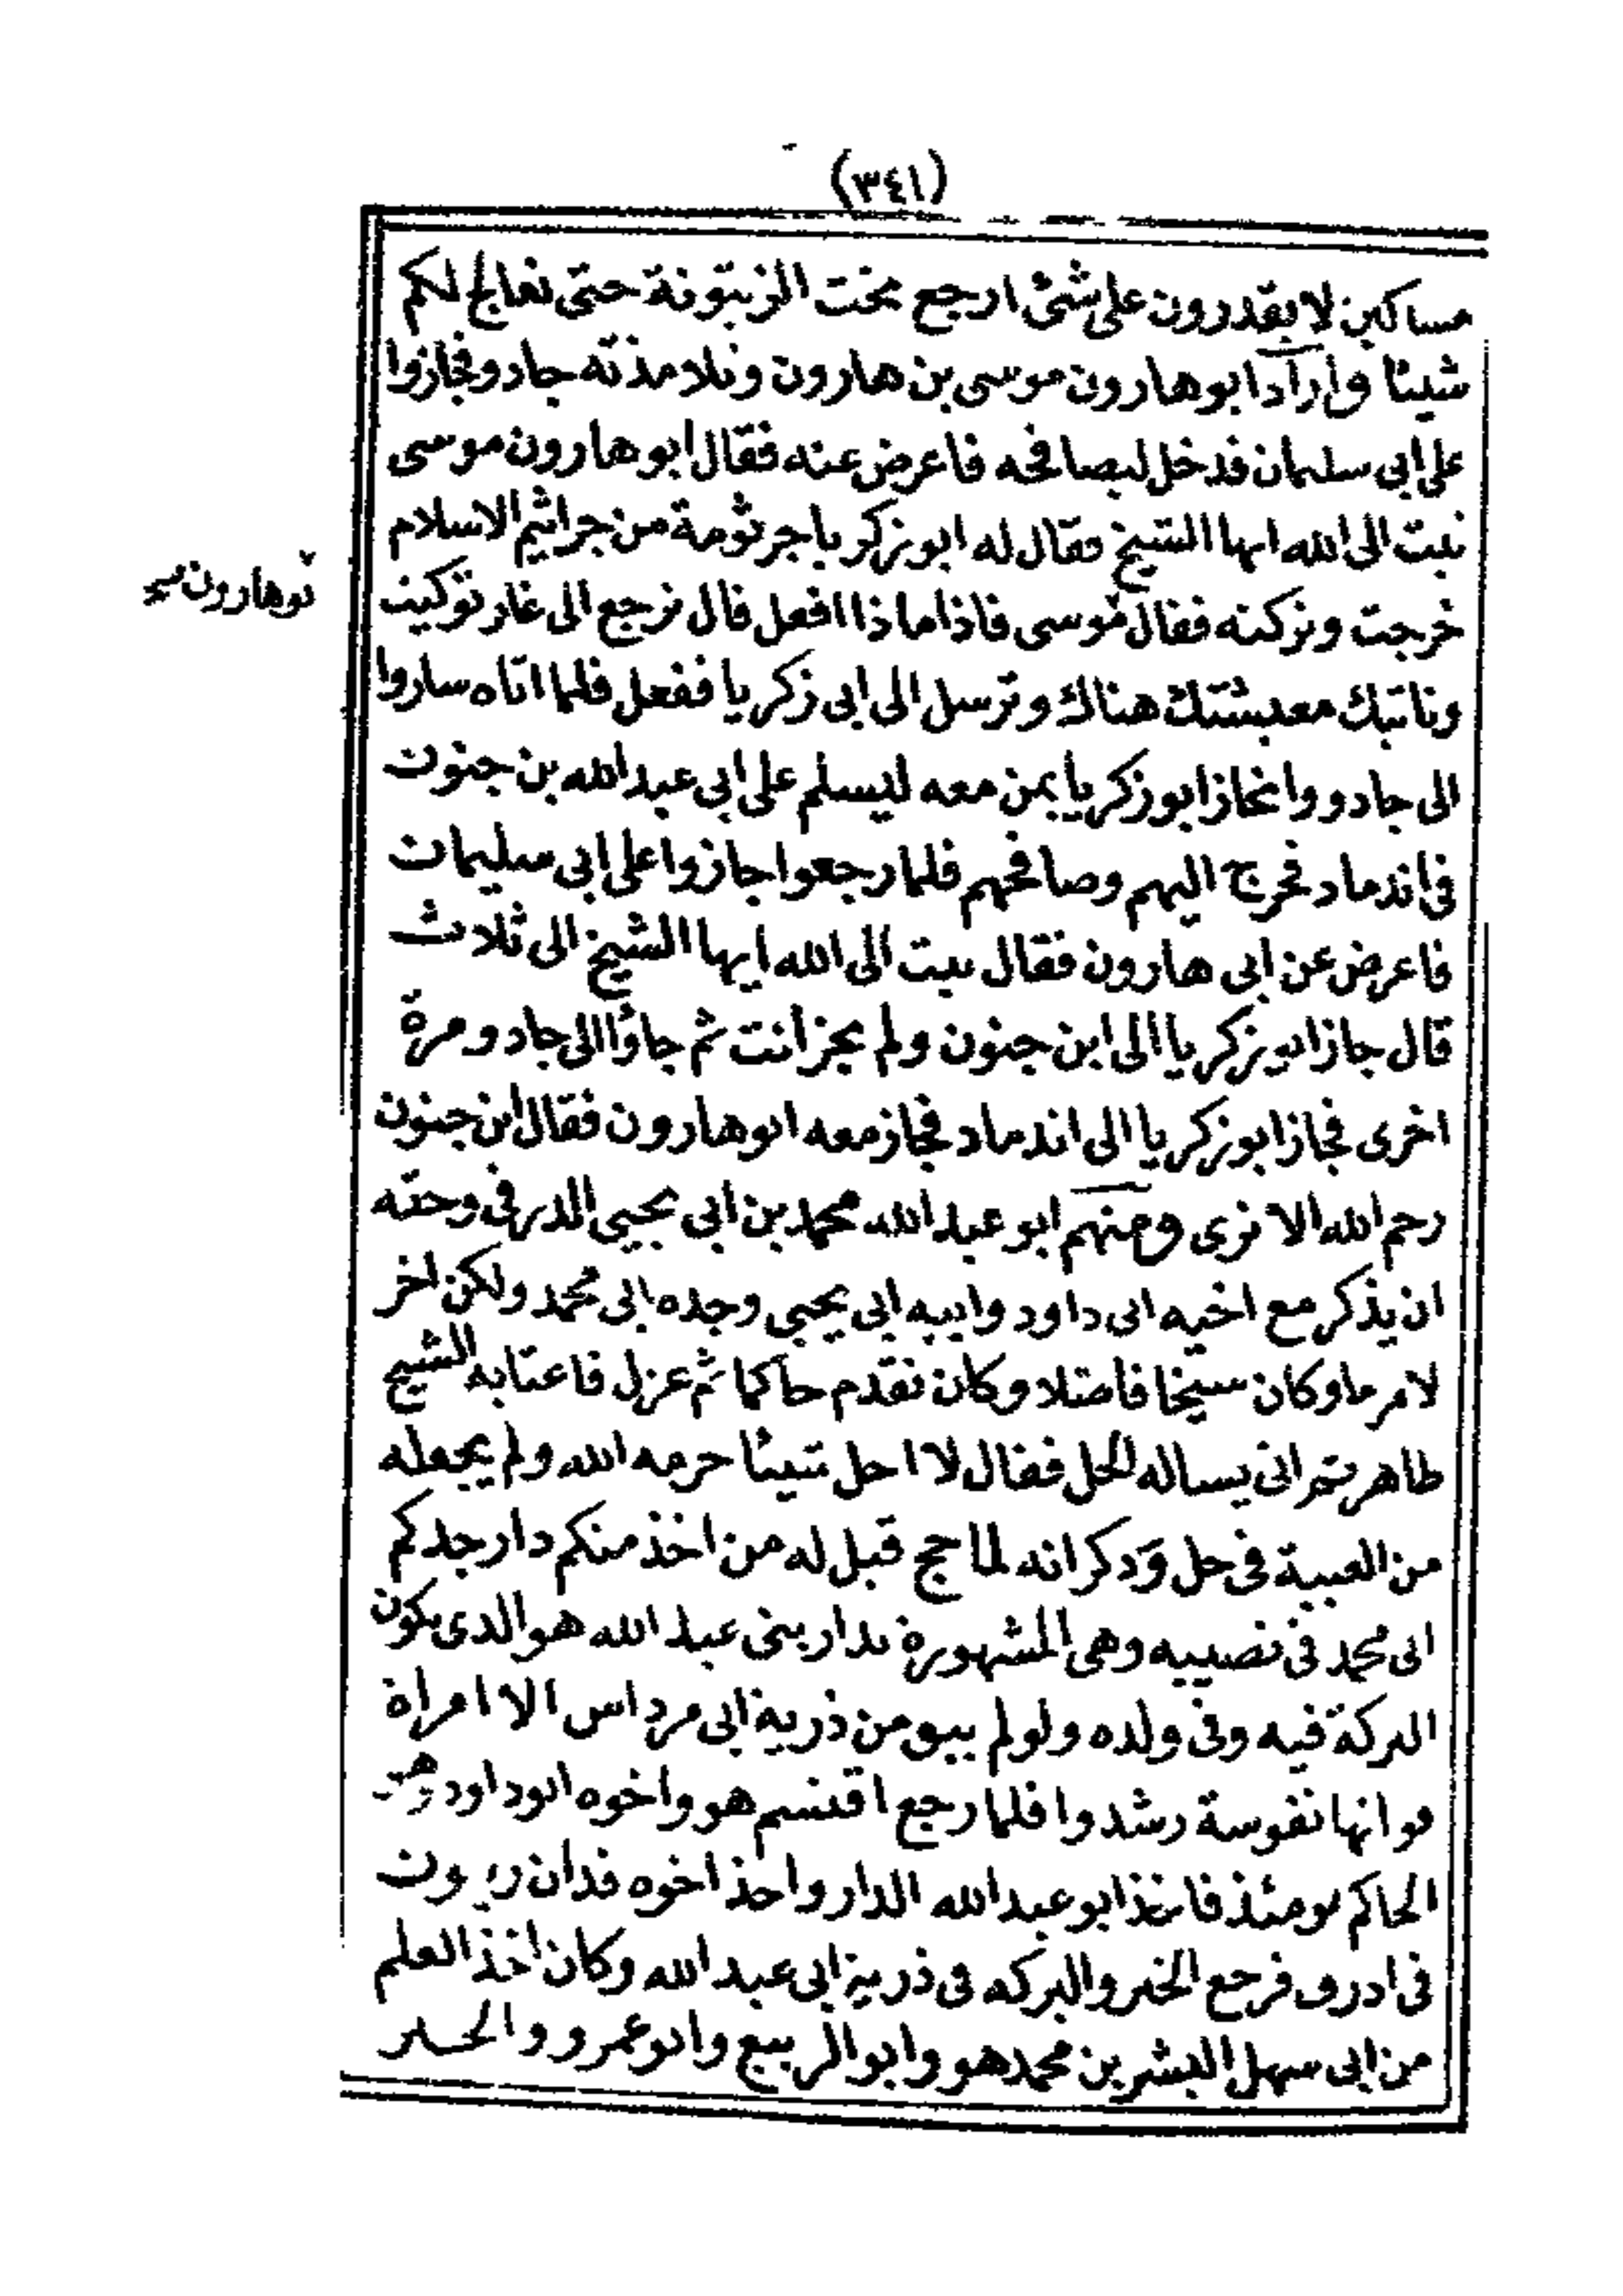 (٣٤١)
مساكين لا يقدرون على شئ ارجع تحت الزيتونة حتى نعالج لكم
شيئا واراد ابو هارون موسى بن هارون وتلامذته جادو فجازوا
على ابى سليمان فدخل ليصافحه فاعرض عنه فقال ابو هارون موسى
تبت الى الله ايها الشيخ فقال له ابو زكريا جرثومة من جراثيم الاسلام
خرجت وتركته فقال موسى فاذا ماذا افعل قال ترجع الى غار توكيت
ابو هارون
وتاتيك معيشتك هناك وترسل الى ابى زكريا ففعل فلما اتاه ساروا
الى جادو وانحاز ابو زكريا بمن معه ليسلم على ابى عبد الله بن جنون
فى اندماد فخرج اليهم وصافحهم فلما رجعوا جازوا على ابى سليمان
فاعرض عن ابى هارون فقال تبت الى الله ايها الشيخ الى ثلاث
قال جاز ابو زكريا الى ابن جنون ولم تجز انت ثم جاؤا الى جادو مرة
اخرى فجاز ابو زكريا الى اندماد فجاز معه ابو هارون فقال ابن جنون
رحم الله الا نرى ومنهم ابو عبد الله محمد بن ابى يحيى الدرفى وحقه
ان يذكر مع اخيه ابى داود وابيه ابى يحيى وجده ابى محمد ولكن اخر
لامر ما وكان شيخا فاضلا وكان تقدم حاكما ثم عزل فاغتابه الشيخ
طاهر ثم اتى يساله الحل فقال لا احل شيئا حرمه الله ولم يجعله
من الغيبة فى حل وذكر انه لما حج قيل له من اخذ منكم دار جدكم
ابى محمد فى نصيبه وهى المشهورة بدار بنى عبد الله هو الذى يكون
البركة فيه وفى ولده ولو لم يبق من ذرية ابى مرداس الا امراة
فوانها نفوسة رشدوا فلما رجع اقتسم هو واخوه ابو داود وهو
الحاكم يومئذ فاخذ ابو عبد الله الدار واخذ اخوه فدان زيتون
فى ادرف فرجع الخير والبركه فى ذرية ابى عبد الله وكان اخذ العلم
من ابى سهل البشر بن محمد هو وابو الربيع وابو عمرو والحسن